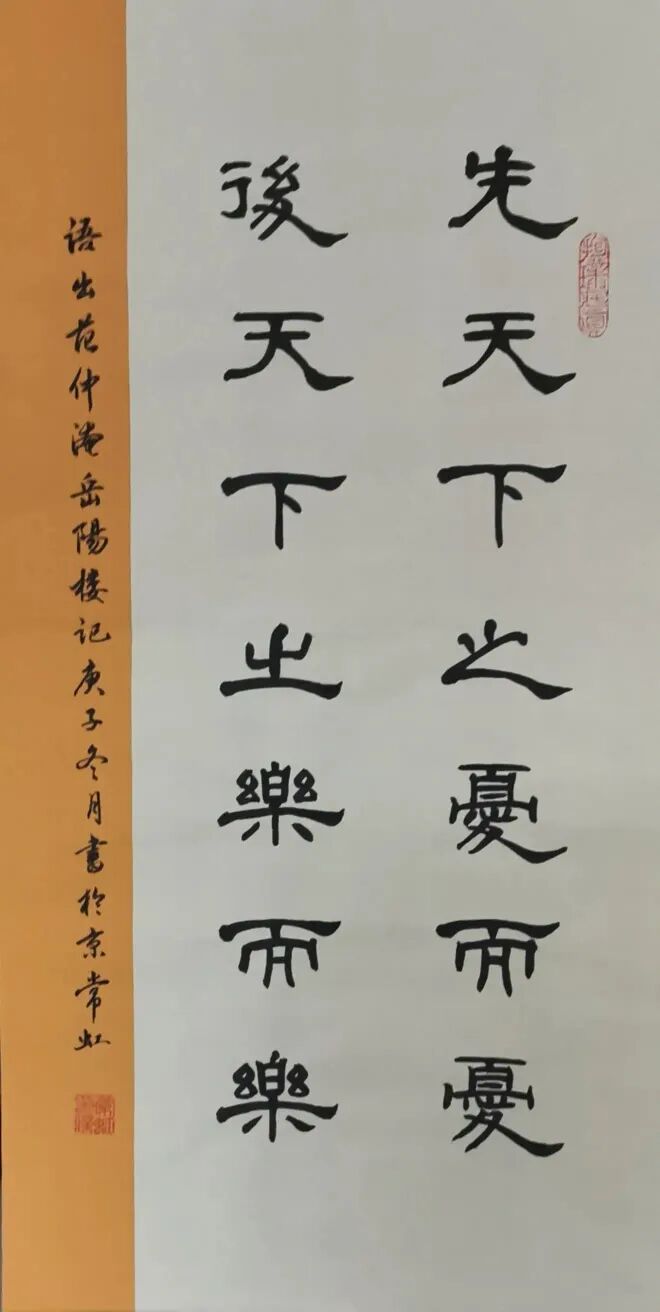 先天下之憂而憂
後天下之樂而樂
語出范仲淹岳陽楼记庚子冬月書於京常虹